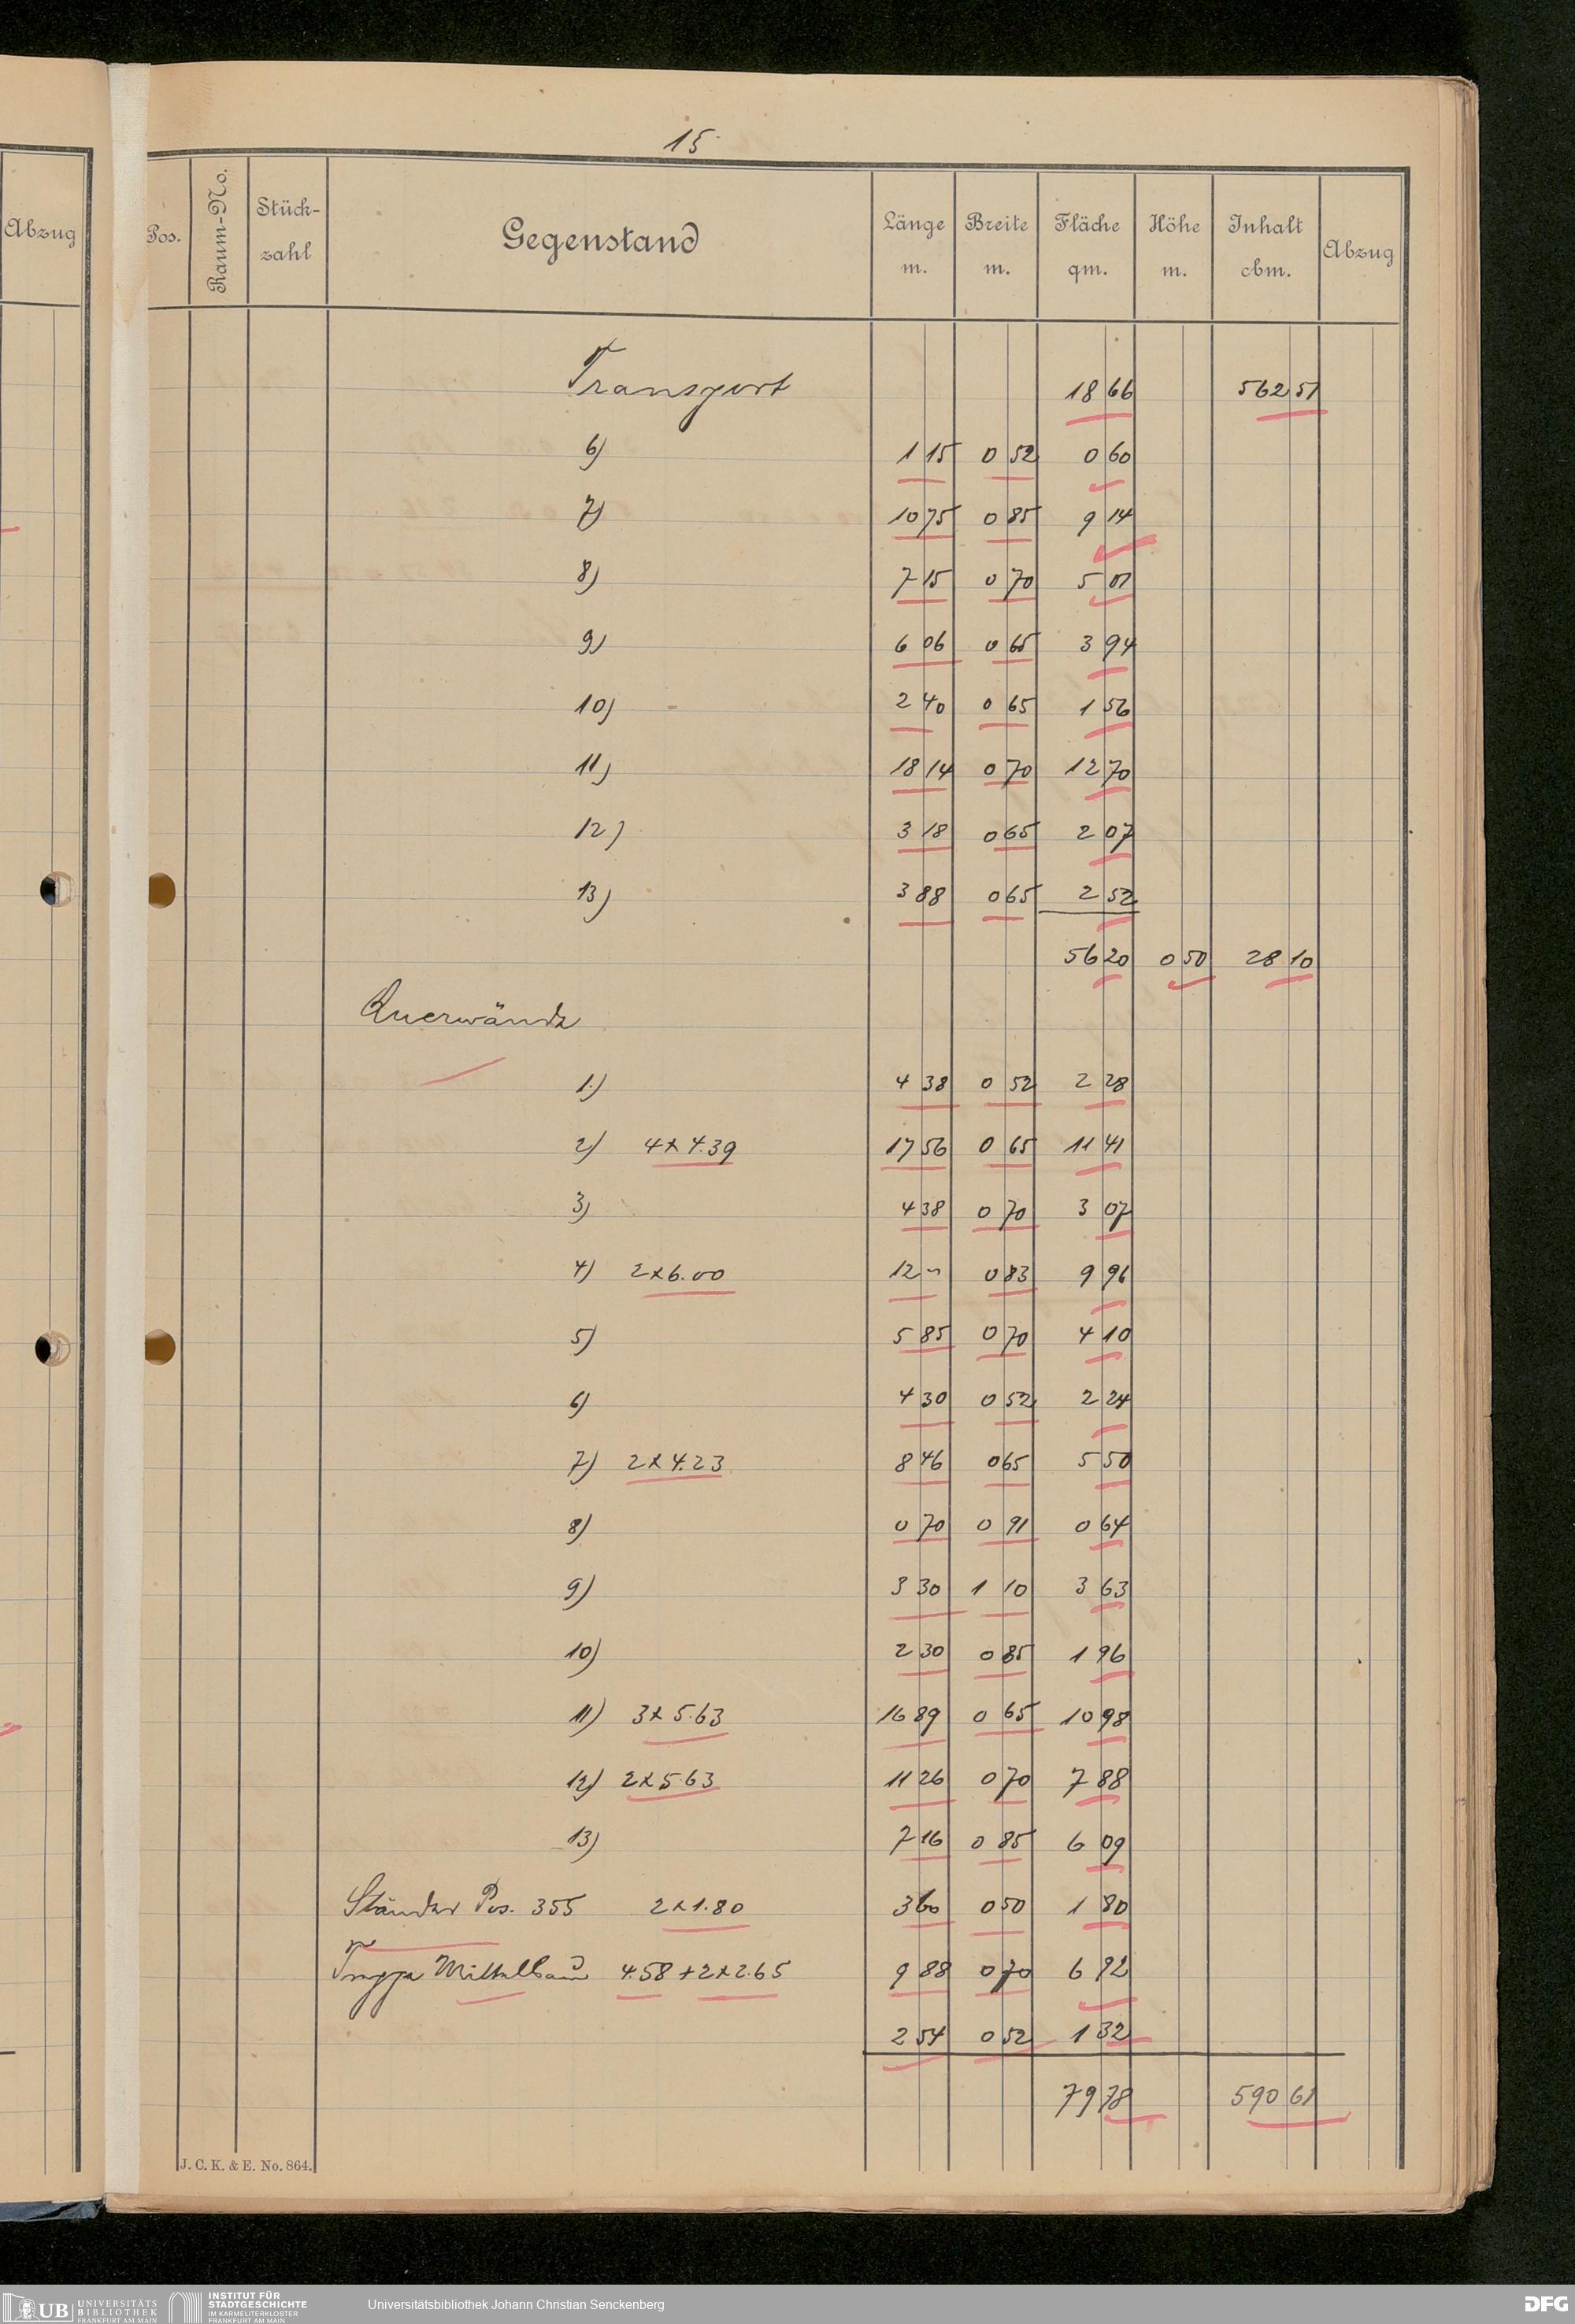 15
Abzug
Pos. Raum-No. Stück-zahl Gegenstand Länge m. Breite m. Fläche qm. Höhe m. Inhalt cbm. Abzug
Transport 18 66 562 51
6) 1 15 0 52 0 60
7) 10 75 0 85 9 14
8) 7 15 0 70 5 01
9) 6 06 0 65 3 94
10) 2 40 0 65 1 56
11) 18 14 0 70 12 70
12) 3 18 0 65 2 07
13) 3 88 0 65 2 52
56 20 0 50 28 10
Querwände
1.) 4 38 0 52 2 28
2) 4x4.39 17 56 0 65 11 41
3) 4 38 0 70 3 07
4) 2x6.00 12 - 0 83 9 96
5) 5 85 0 70 4 10
6) 4 30 0 52 2 24
7) 2x4.23 8 46 0 65 5 50
8) 0 70 0 91 0 64
9) 3 30 1 10 3 63
10) 2 30 0 85 1 96
11) 3x5.63 16 89 0 65 10 98
12) 2x5.63 11 26 0 70 7 88
13) 7 16 0 85 6 09
Ständer Pos. 355 2x1.80 3 60 0 50 1 80
Treppe Mittelbau 4.58+2x2.65 9 88 0 70 6 92
2 54 0 52 1 32
79 78 590 61
J. C. K. & E. No. 864.
UB UNIVERSITÄTS BIBLIOTHEK FRANKFURT AM MAIN
INSTITUT FÜR STADTGESCHICHTE IM KARMELITERKLOSTER FRANKFURT AM MAIN
Universitätsbibliothek Johann Christian Senckenberg
DFG